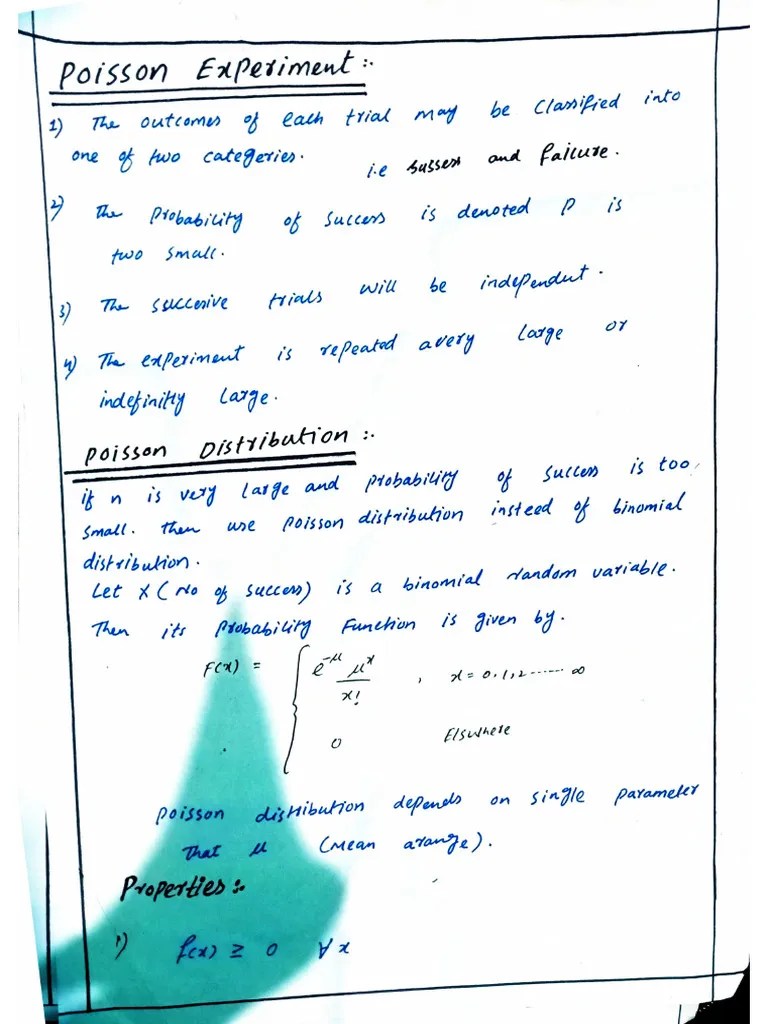 Poisson Experiment:-
1) The outcomes of each trial may be Classified into
one of two categeries. i.e Sussess and failure.
2) The Probability of Success is denoted P is
two small.
3) The succesive trials will be independent.
4) The experiment is repeated avery large or
indefinitly large.
Poisson Distribution:-
if n is very large and probability of success is too
small. Then use poisson distribution instead of binomial
distribution.
Let X (No of success) is a binomial random variable.
Then its probability Function is given by.
F(x) = { e^-μ μ^x / x! , x = 0,1,2 ...... ∞
0 Elswhere
poisson distribution depends on single parameter
That μ (Mean arange).
Properties:-
1) f(x) ≥ 0 ∀ x